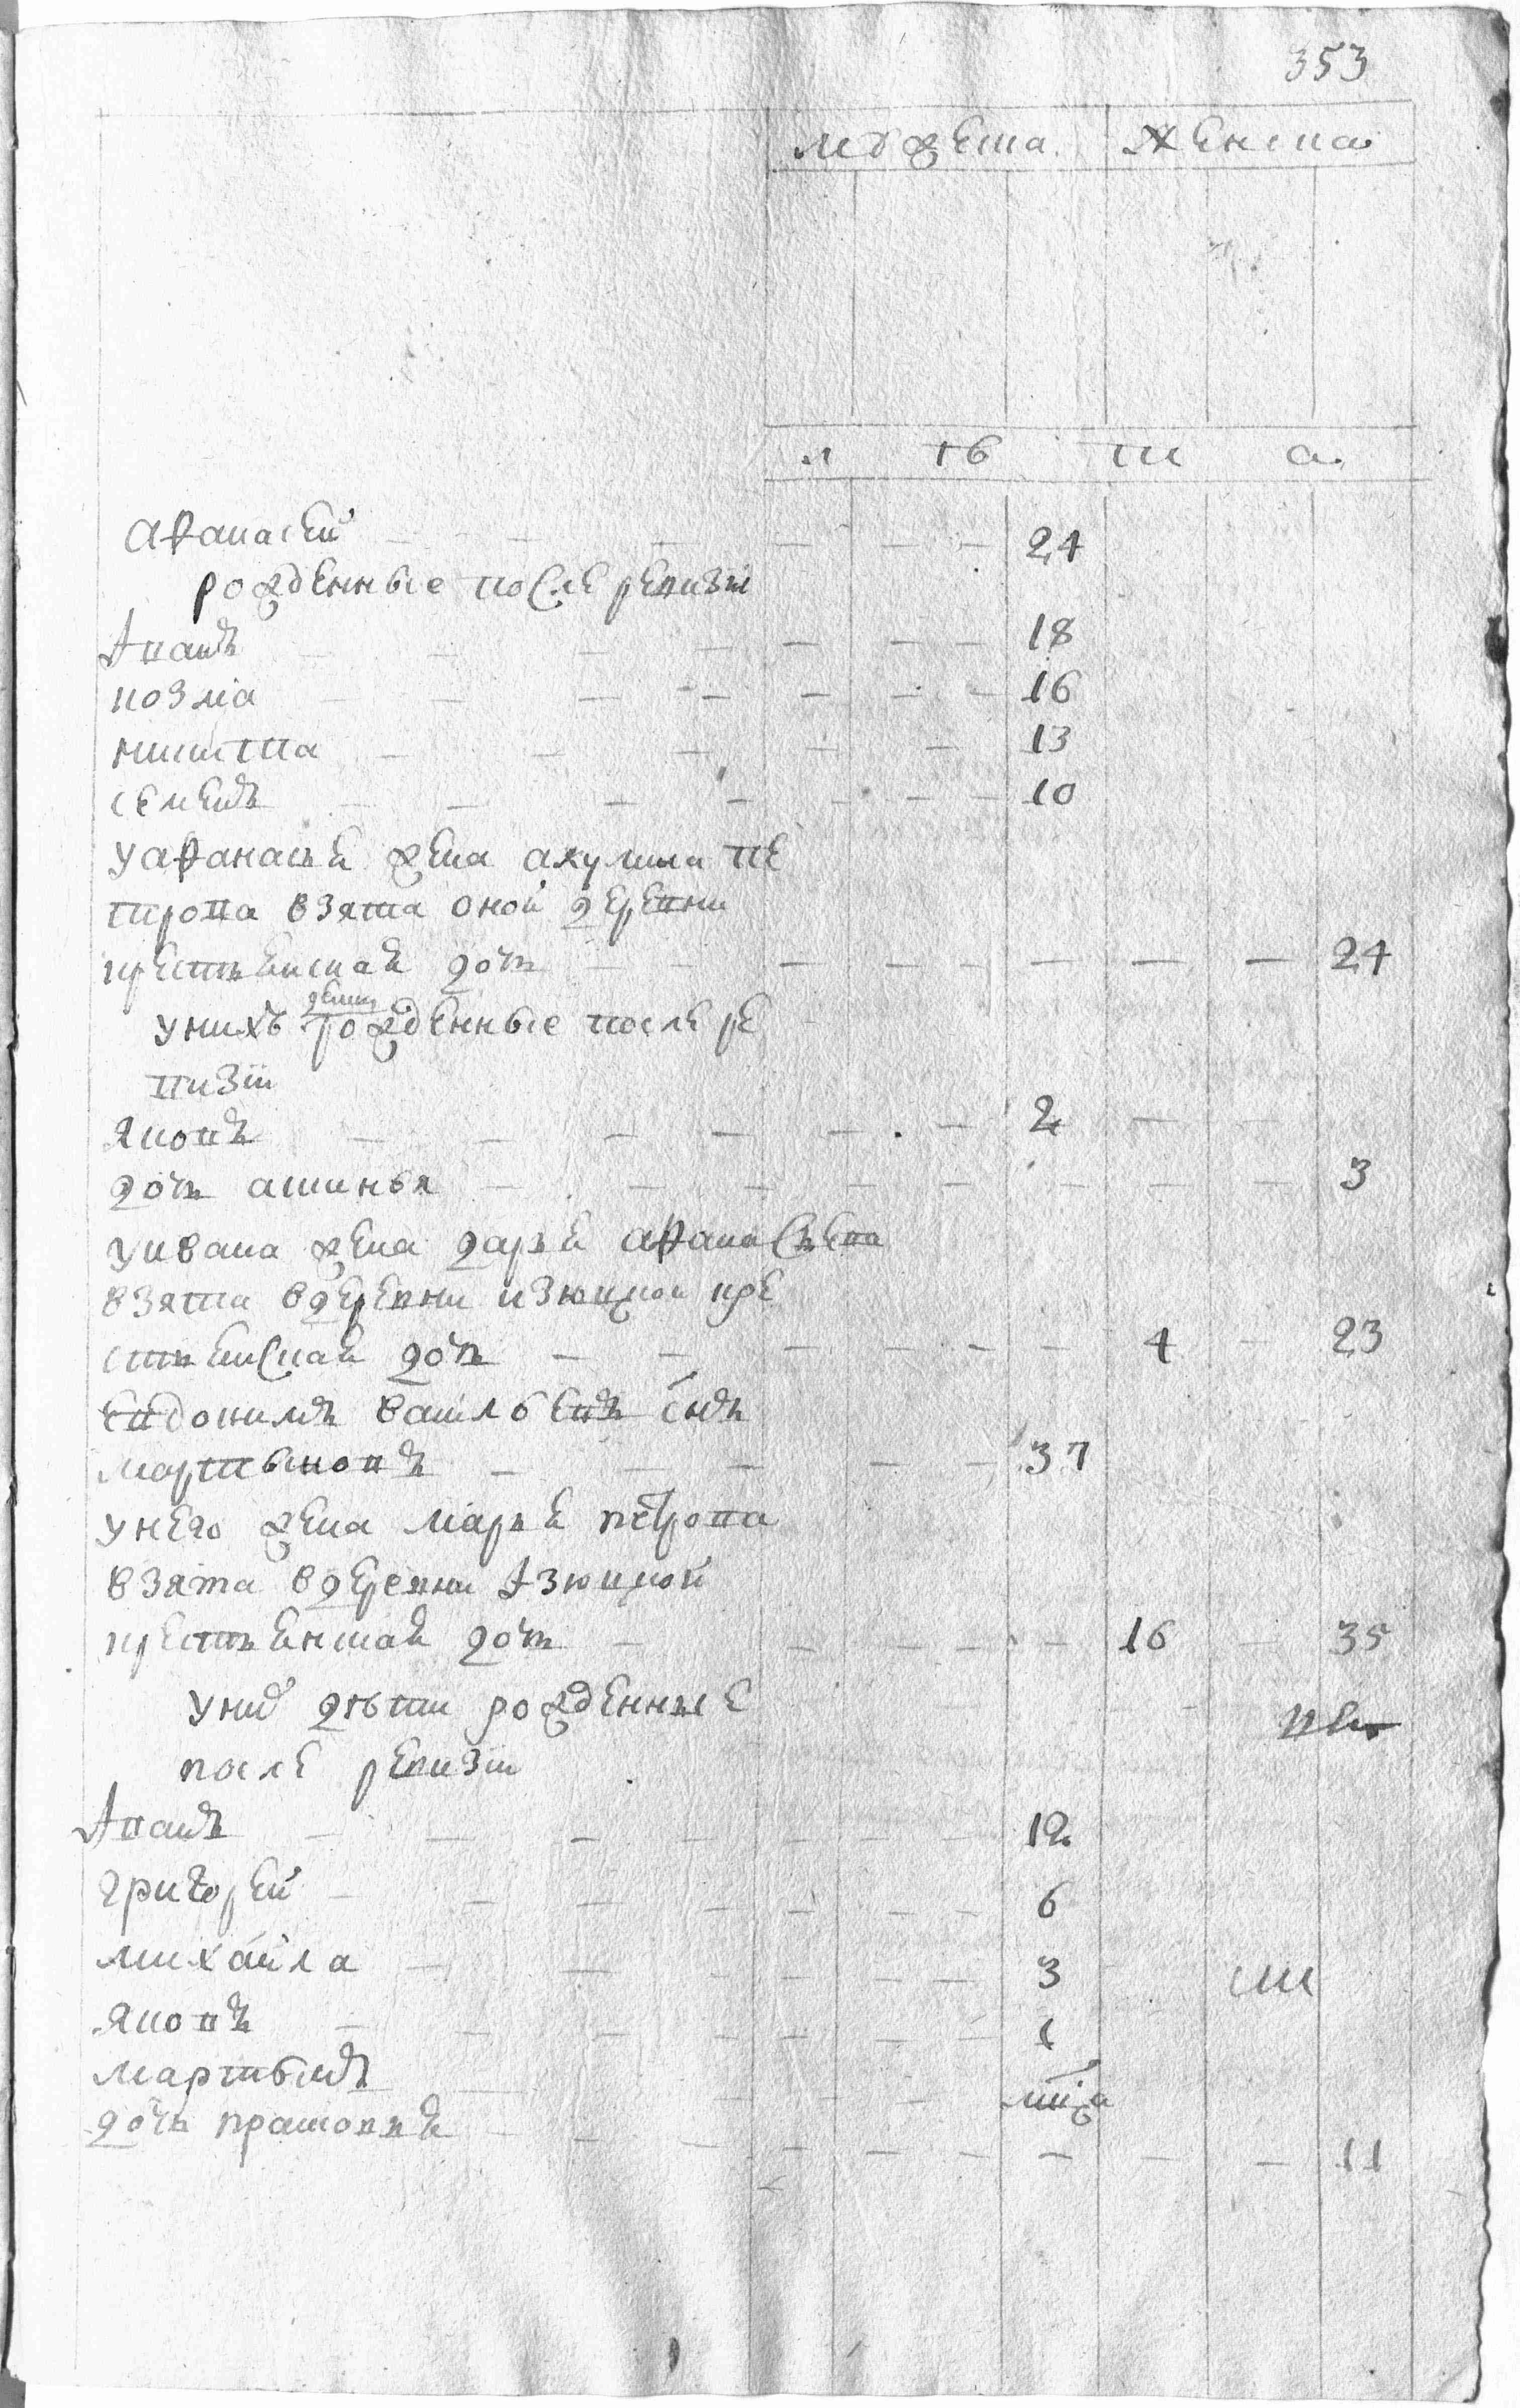 353
мужеска женска
л ѣ т а
Афанасей 24
рожденные после ревизіи
Иванъ 18
Козма 16
никита 13
семенъ 10
у афанасья жена акулина пе
трова взята оной деревни
крестьянская дочь 24
у нихъ дети рожденные после ре
визіи
Яковъ 2
дочь аксинья 3
у ивана жена дарья афанасьева
взята в деревни изюцкой кре
стьянская дочь 4 23
Евдокимъ василъевъ снъ
мартыновъ 37
у него жена марья петрова
взята в деревни Изюцкой
крестьянская дочь 16 35
у них дѣти рожденные
после ревизіи
Иванъ 12
григорей 6
михаила 3
Яковъ 1
мартынъ
дочь прасковья 11